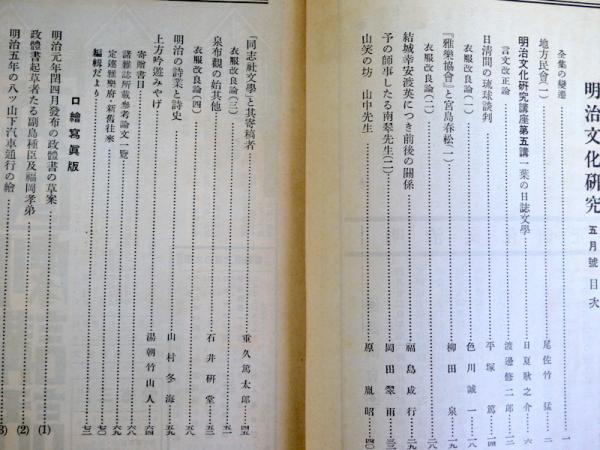 明治文化研究 五月號 目次
全集の變遷……一
地方民會(一)……尾佐竹 猛…二
明治文化研究講座第五講 一葉の日誌文學……日夏耿之介…六
言文改正論……渡邊修二郎…一三
日清間の琉球談判……平塚 篤…一四
衣服改良論(一)……色川誠一…一八
『雅樂協會』と宮島春松(一)……柳田 泉…一九
衣服改良論(二)……二八
結城幸安波英につき前後の關係……福島成行…二九
予の師事したる南翠先生(二)……岡田翠雨…三
山笑の坊 山中先生……原 胤昭…四〇
「同志社文學」と其寄稿者……重久篤太郎…四五
衣服改良論(三)……五一
泉布觀の始其他……石井研堂…五三
衣服改良論(四)……五八
明治の詩業と詩史……山村冬海…五九
上方吟遊みやげ……湯朝竹山人…六四
寄贈書目……六八
諸雜誌所載參考論文一覽……六九
定連雅樂府・新舊往來……七〇
編輯だより……七二
口繪寫眞版
明治元年閏四月發布の政體書の草案……(1)
政體書起草者たる副島種臣及福岡孝弟……(2)
明治五年の八ッ山下汽車通行の繪……(3)